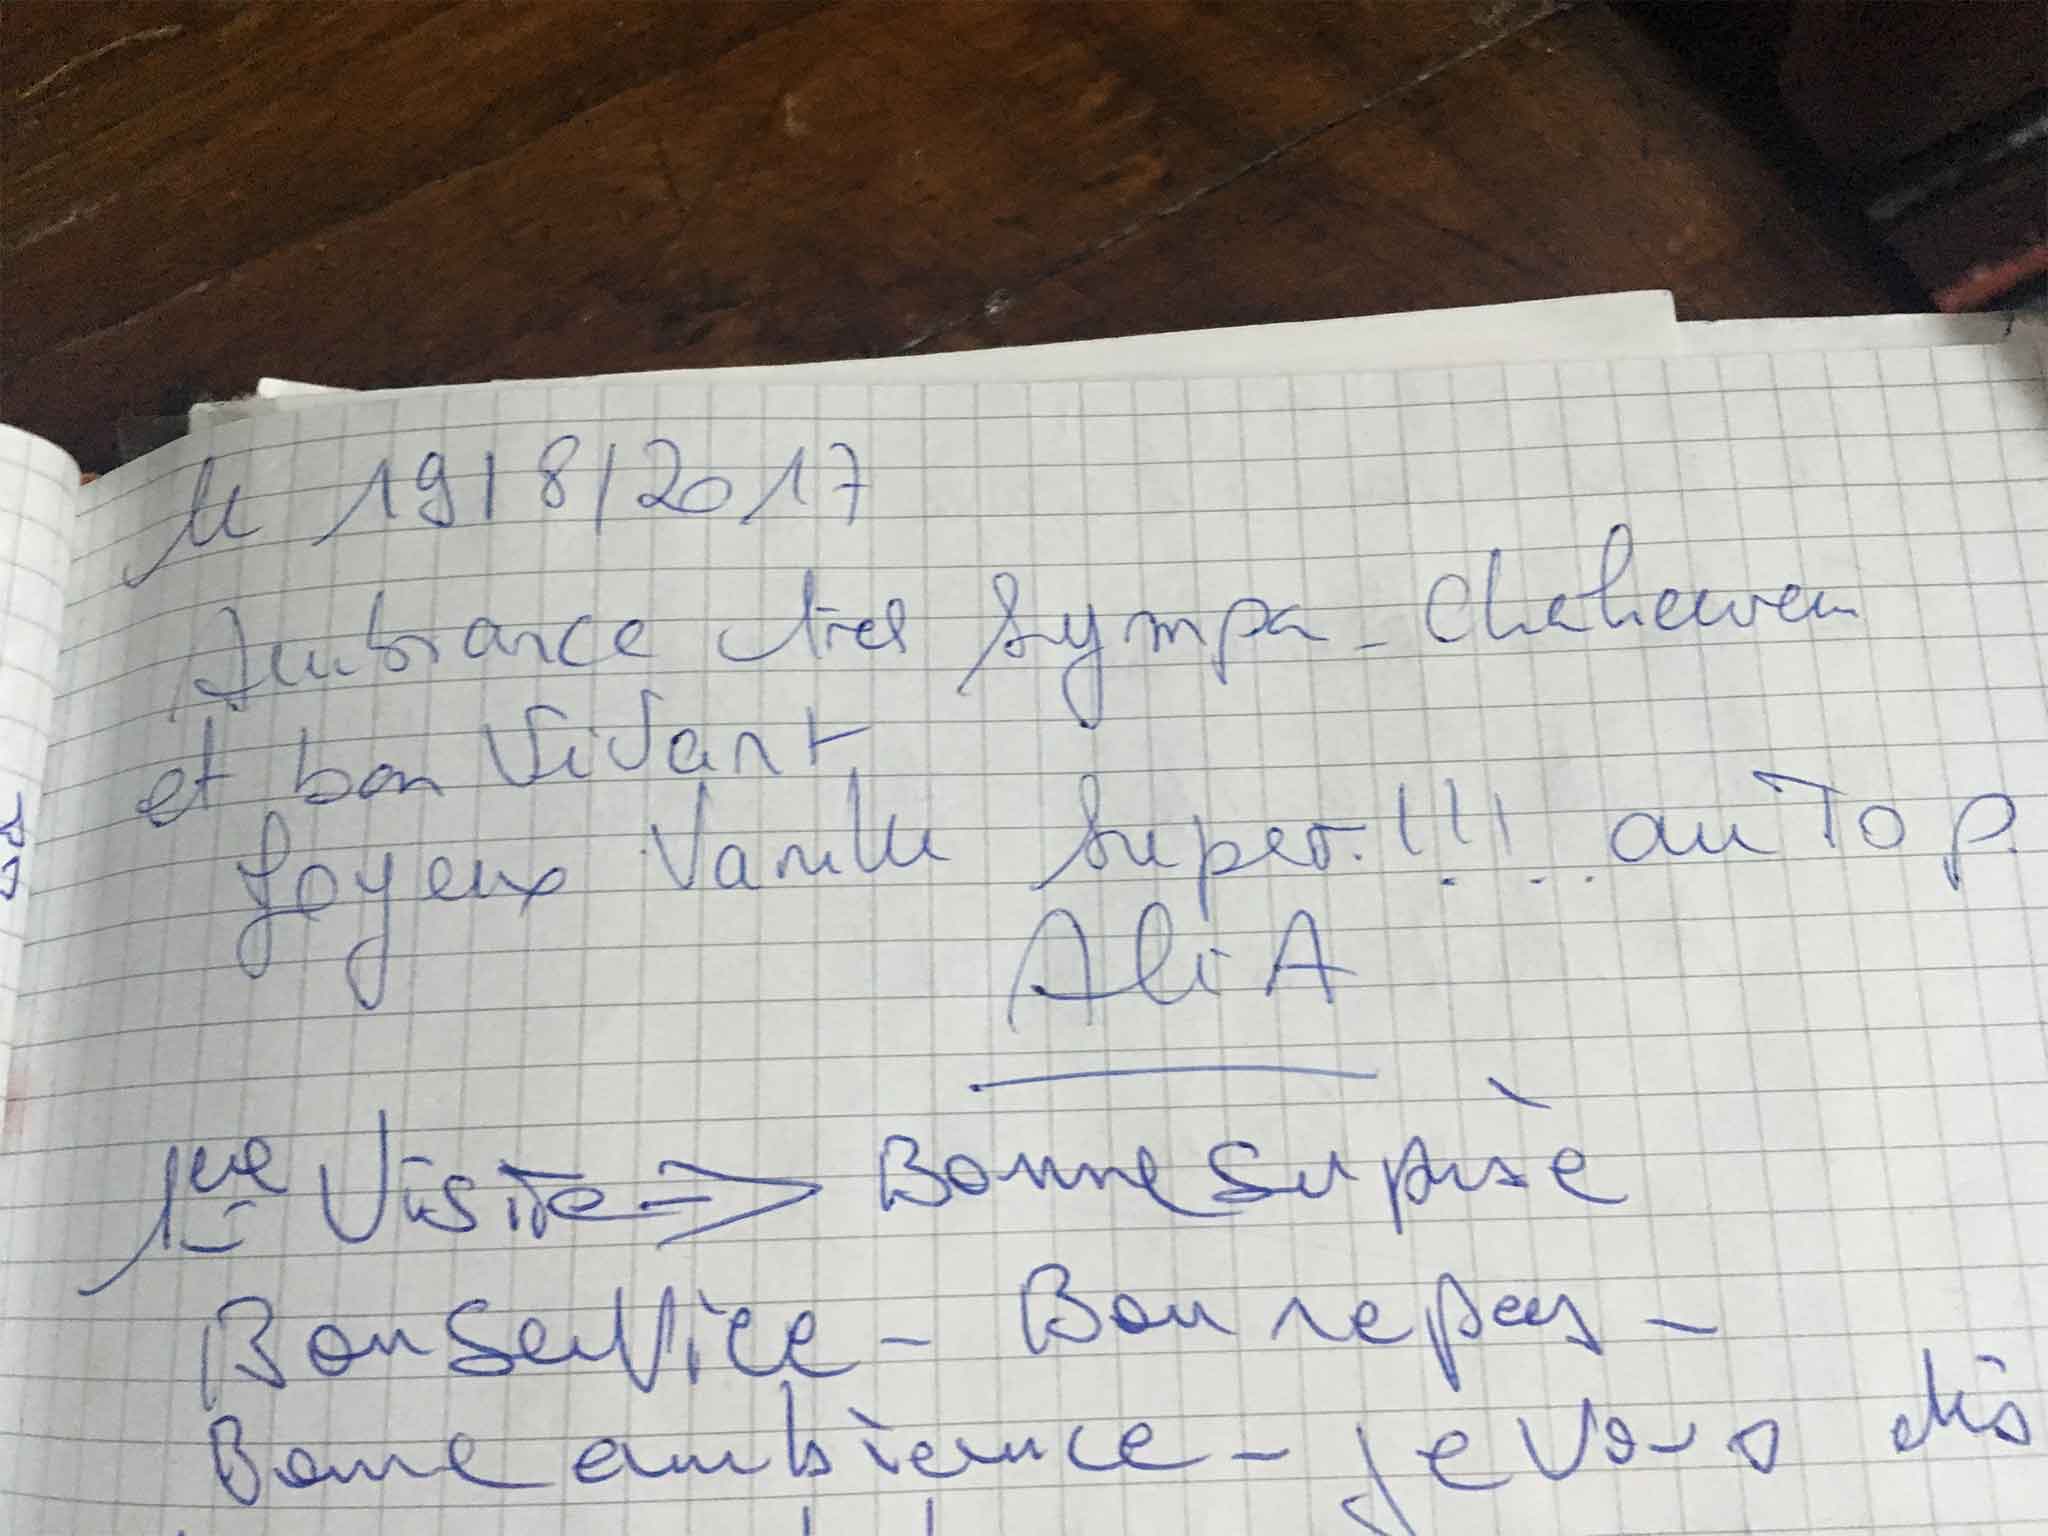 le 19/8/2017
Ambiance très sympa - Chaleureux
et bon Vivant
Joyeux Vanille super.!!!... au Top
Ali A
1ère Visite => Bonne Suprise
Bon Service - Bon repas -
Bonne ambience - je vous dis